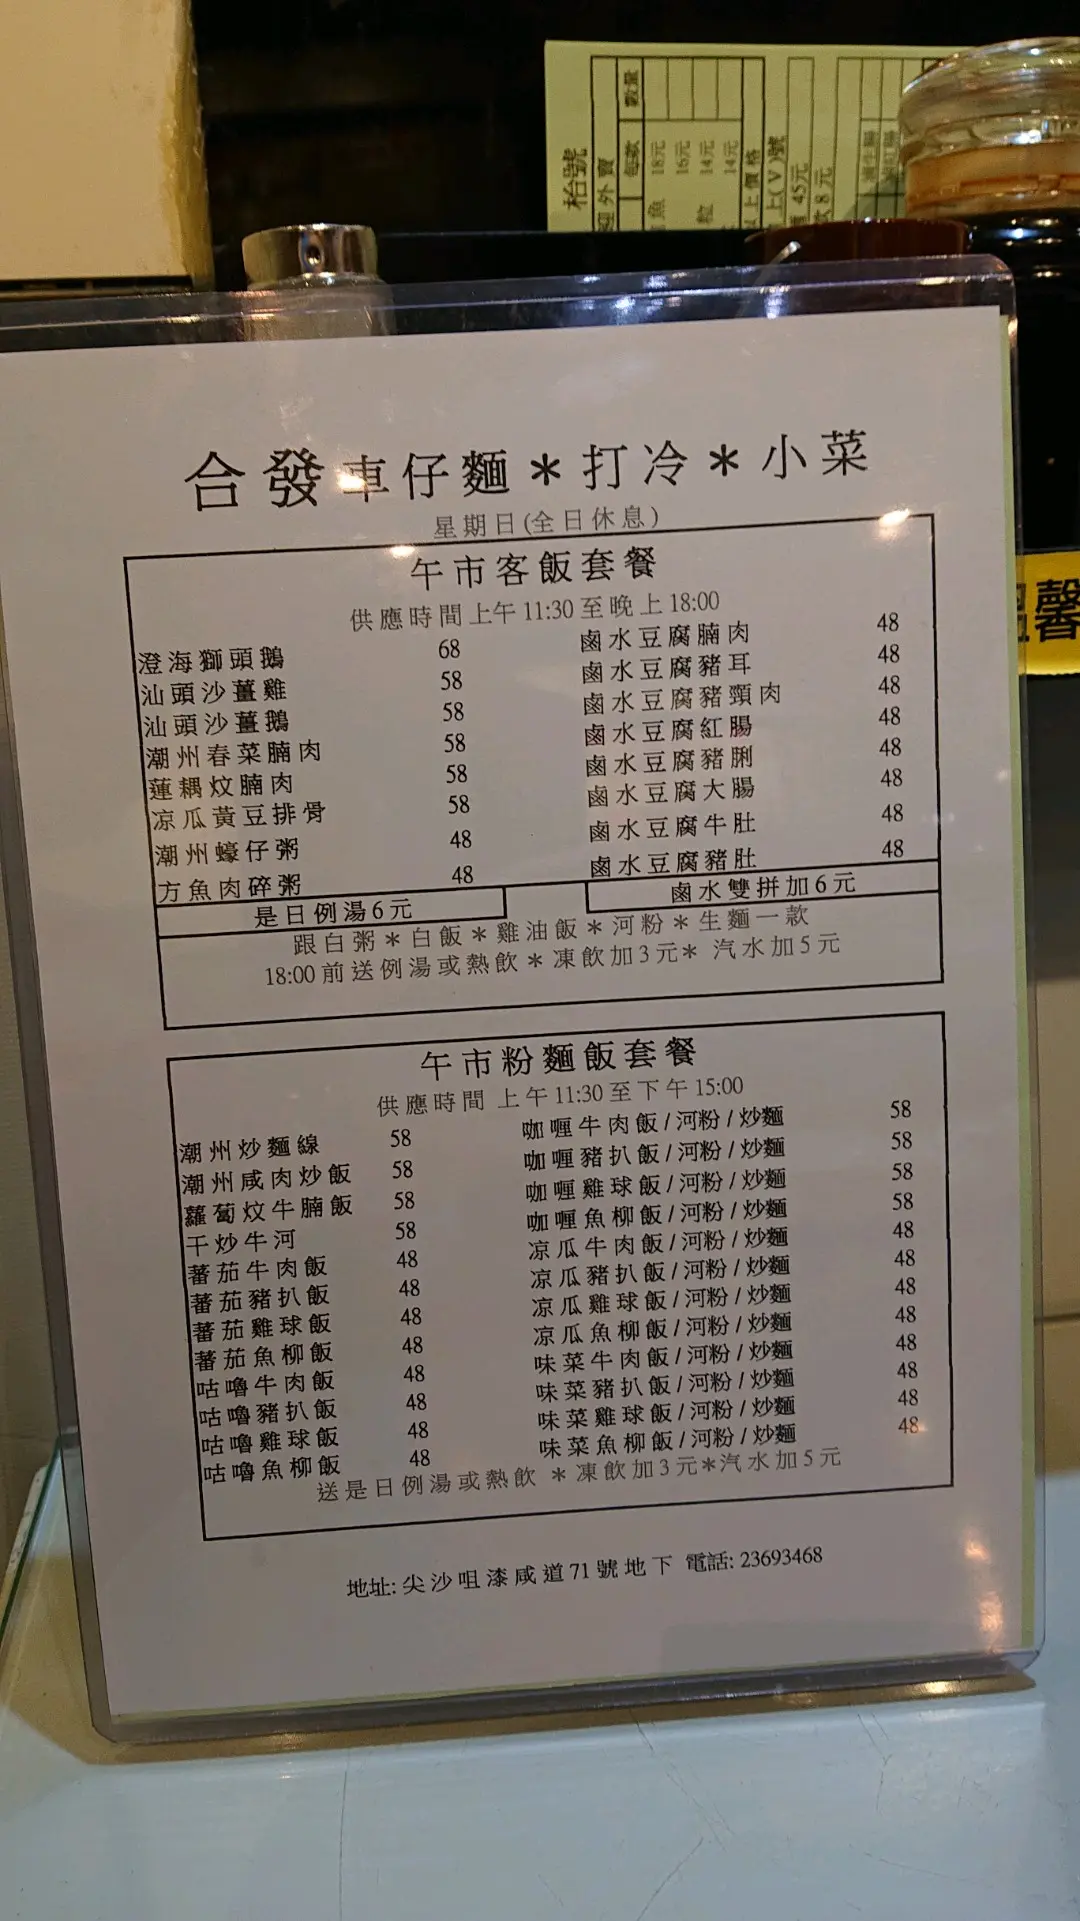 枱號
迎外賣
每款 數量
魚 18元
16元
粒 14元
14元
以上價格
上(V)號
45元
飲8元
合發車仔麵*打冷*小菜
星期日(全日休息)
午市客飯套餐
供應時間上午11:30至晚上18:00
澄海獅頭鵝 68 鹵水豆腐腩肉 48
汕頭沙薑雞 58 鹵水豆腐豬耳 48
汕頭沙薑鵝 58 鹵水豆腐豬頸肉 48
潮州春菜腩肉 58 鹵水豆腐紅腸 48
蓮耦炆腩肉 58 鹵水豆腐豬脷 48
凉瓜黃豆排骨 58 鹵水豆腐大腸 48
潮州蠔仔粥 48 鹵水豆腐牛肚 48
方魚肉碎粥 48 鹵水豆腐豬肚 48
是日例湯6元 鹵水雙拼加6元
跟白粥*白飯*雞油飯*河粉*生麵一款
18:00前送例湯或熱飲*凍飲加3元* 汽水加5元
午市粉麵飯套餐
供應時間 上午11:30至下午15:00
潮州炒麵線 58 咖喱牛肉飯/河粉/炒麵 58
潮州咸肉炒飯 58 咖喱豬扒飯/河粉/炒麵 58
蘿蔔炆牛腩飯 58 咖喱雞球飯/河粉/炒麵 58
干炒牛河 58 咖喱魚柳飯/河粉/炒麵 58
蕃茄牛肉飯 48 凉瓜牛肉飯/河粉/炒麵 48
蕃茄豬扒飯 48 凉瓜豬扒飯/河粉/炒麵 48
蕃茄雞球飯 48 凉瓜雞球飯/河粉/炒麵 48
蕃茄魚柳飯 48 凉瓜魚柳飯/河粉/炒麵 48
咕嚕牛肉飯 48 味菜牛肉飯/河粉/炒麵 48
咕嚕豬扒飯 48 味菜豬扒飯/河粉/炒麵 48
咕嚕雞球飯 48 味菜雞球飯/河粉/炒麵 48
咕嚕魚柳飯 48 味菜魚柳飯/河粉/炒麵 48
送是日例湯或熱飲 *凍飲加3元*汽水加5元
地址:尖沙咀漆咸道71號地下 電話:23693468
溫馨